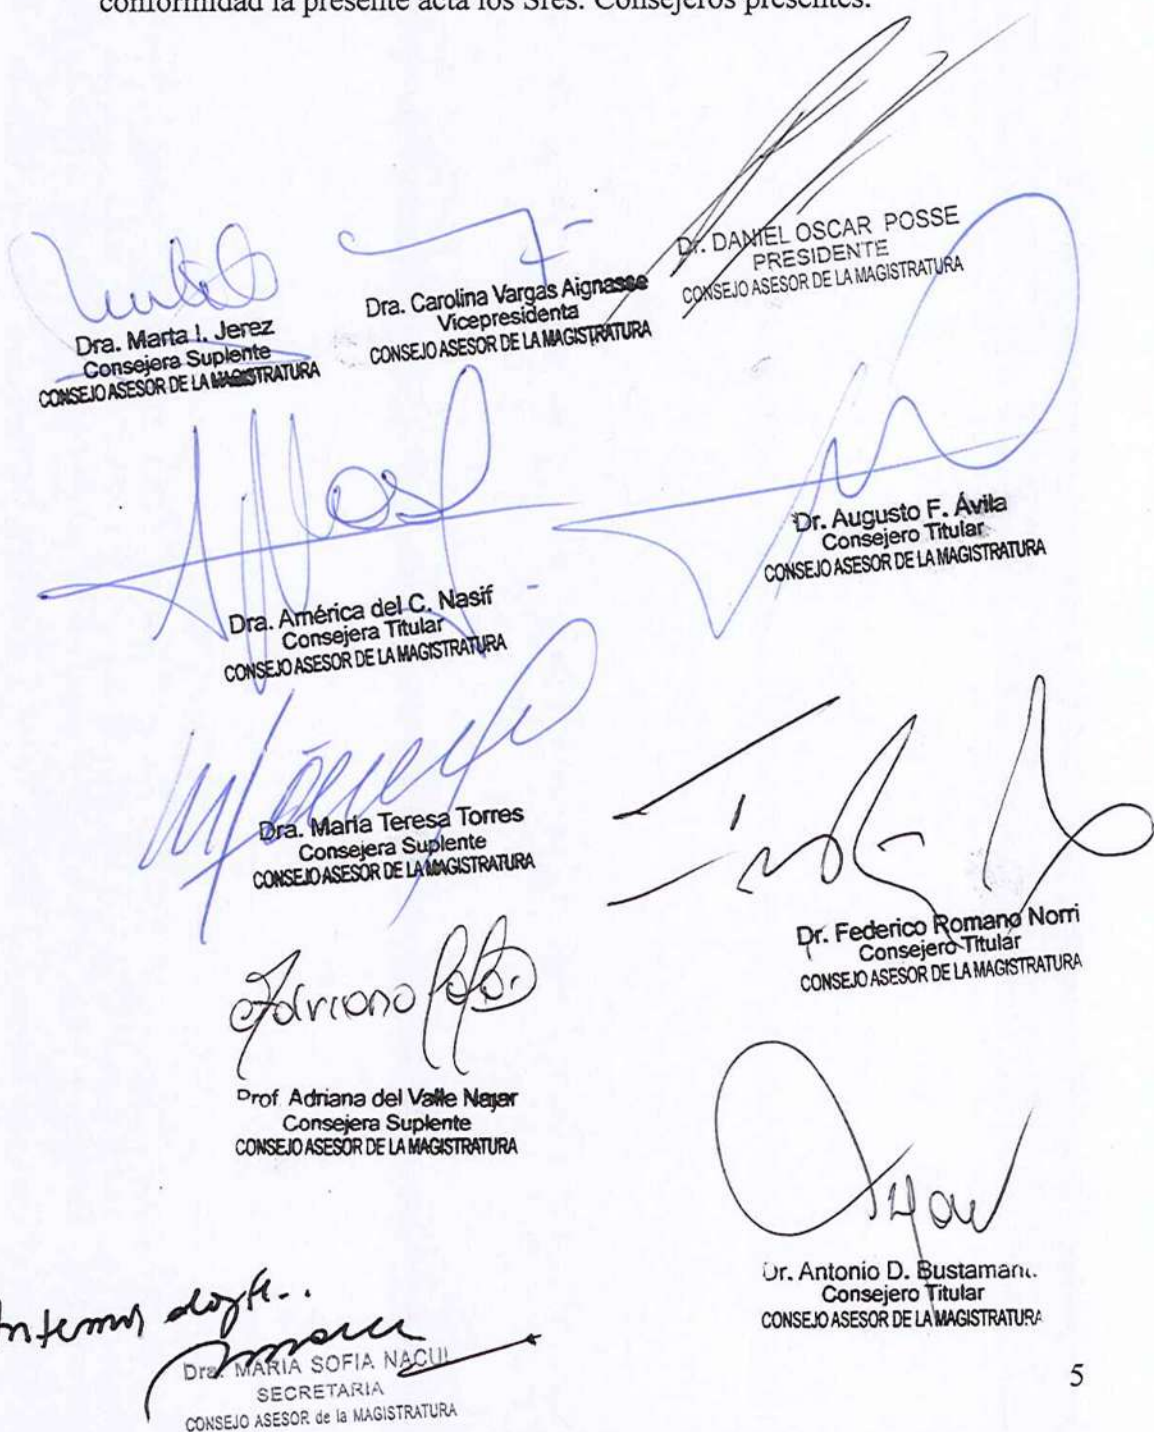 conformidad la presente acta los Sres. Consejeros presentes.
Dr. DANIEL OSCAR POSSE
PRESIDENTE
CONSEJO ASESOR DE LA MAGISTRATURA
Dra. Carolina Vargas Aignasse
Vicepresidenta
CONSEJO ASESOR DE LA MAGISTRATURA
Dra. Marta I. Jerez
Consejera Suplente
CONSEJO ASESOR DE LA MAGISTRATURA
Dr. Augusto F. Ávila
Consejero Titular
CONSEJO ASESOR DE LA MAGISTRATURA
Dra. América del C. Nasif
Consejera Titular
CONSEJO ASESOR DE LA MAGISTRATURA
Dra. María Teresa Torres
Consejera Suplente
CONSEJO ASESOR DE LA MAGISTRATURA
Dr. Federico Romano Norri
Consejero Titular
CONSEJO ASESOR DE LA MAGISTRATURA
Prof. Adriana del Valle Najar
Consejera Suplente
CONSEJO ASESOR DE LA MAGISTRATURA
Dr. Antonio D. Bustamante
Consejero Titular
CONSEJO ASESOR DE LA MAGISTRATURA
Dra. MARIA SOFIA NACUL
SECRETARIA
CONSEJO ASESOR de la MAGISTRATURA
5